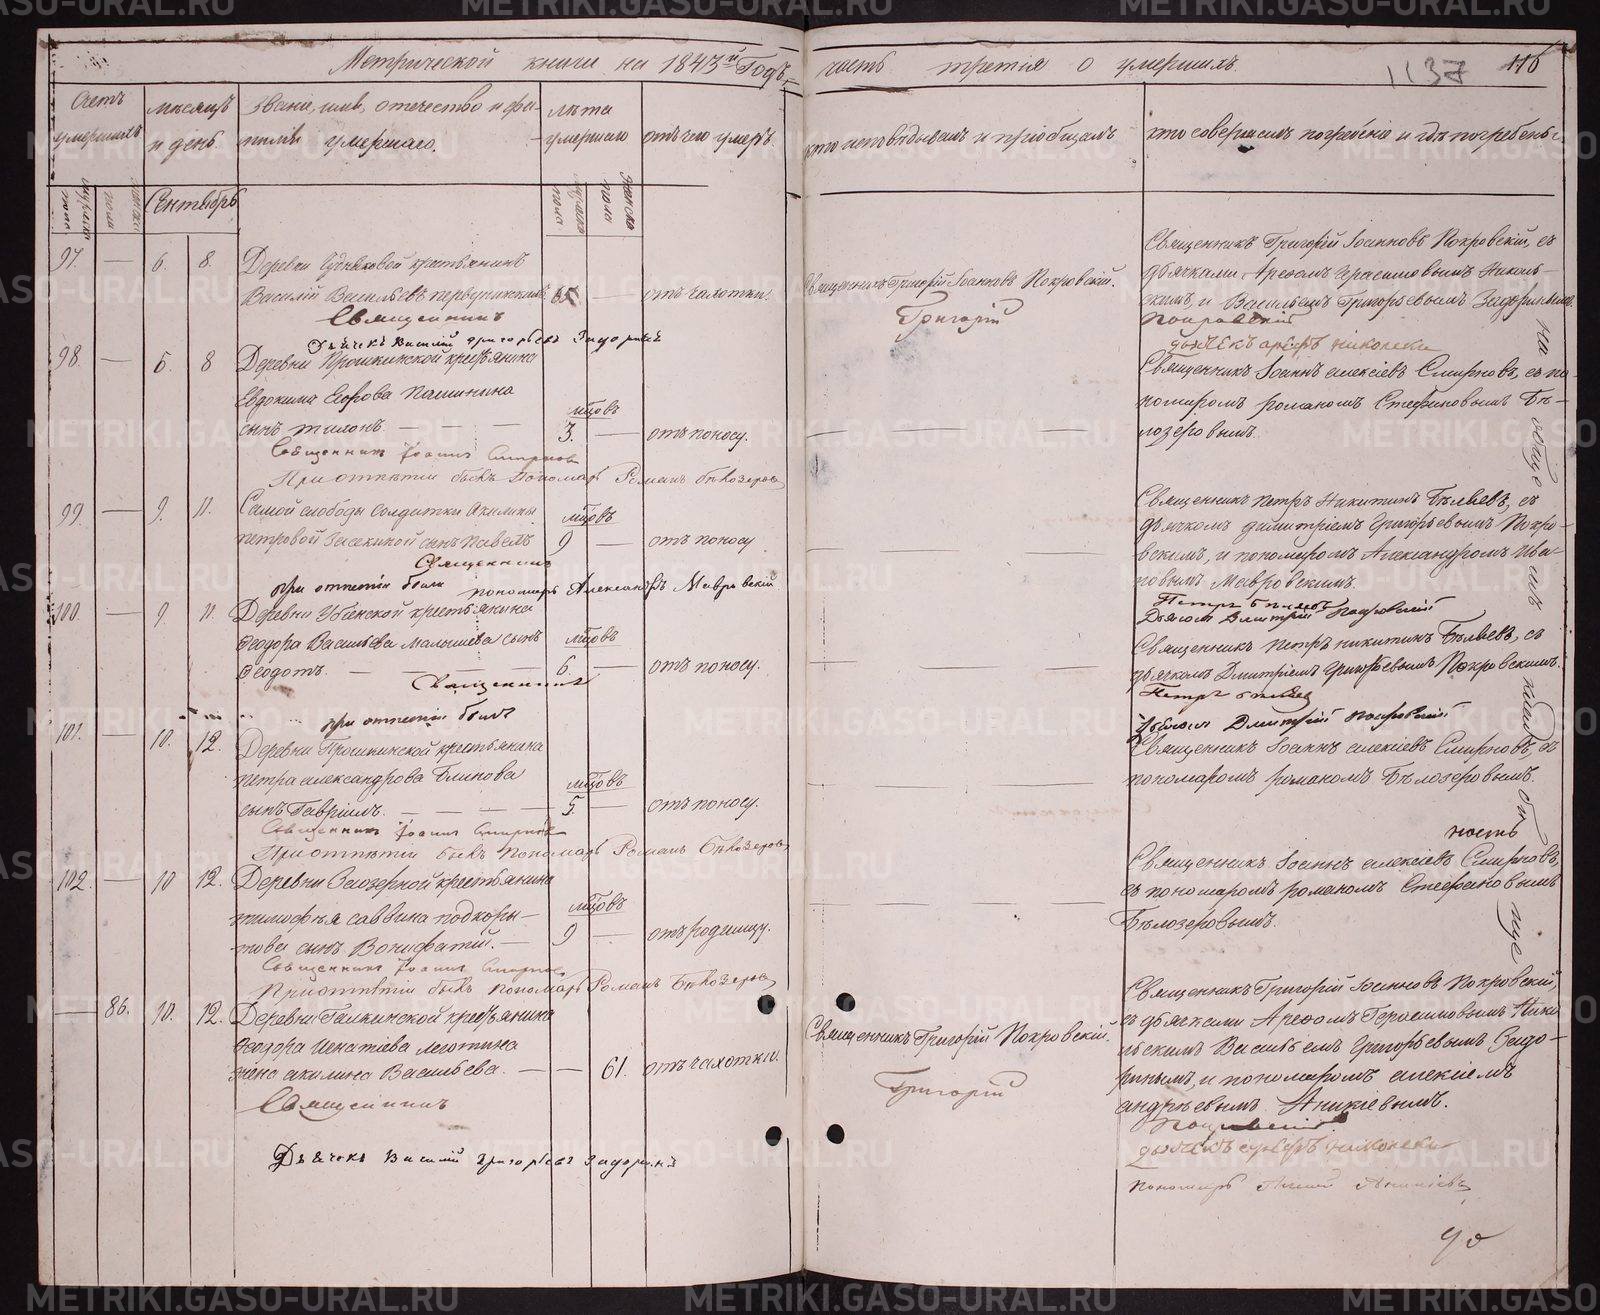 Метрической книги на 1843й Годъ,
часть третія о умершихъ.
1137
116
Счетъ умершихъ
мѣсяцъ и день
Званіе, имя, отечество и фамилія умершаго.
лѣта умершаго
отъ чего умеръ.
кто исповѣдывалъ и пріобщалъ
кто совершалъ погребеніе и гдѣ погребены
мужеска пола
женска пола
Сентябрь
мужеска пола
женска пола
97. — 6. 8.
Деревни крестьянинъ
Василій Васильевъ — отъ чахотки.
Священникъ
Дьячекъ Василій Григорьевъ Задоринъ
Священникъ Григорій Іоанновъ Покровскій.
Григорій
Священникъ Григорій Іоанновъ Покровскій, съ
дьячками, Арефомъ Герасимовымъ Николь-
скимъ и Васильемъ Григорьевымъ Задоринымъ.
Покровскій
дьячекъ Арефъ Никольски
98. — 6. 8
Деревни Прошкинской крестьянина
Евдокима Егорова Памшина
мцовъ
сынъ Тихонъ — — — 3. — отъ поносу.
Священникъ Іоаннъ Смирновъ
При отпѣтіи былъ Пономарь Романъ Бѣлозеровъ
Священникъ Іоаннъ Алексіевъ Смирновъ, съ по-
номаромъ Романомъ Стефановымъ Бѣ-
лозеровымъ.
99. — 9. 11.
Самой слободы солдатки Акилины
мцовъ
Петровой Засекиной сынъ Павелъ 9 — отъ поносу
Священникъ
при отпетіи были пономарь Александръ Мавровскій
Священникъ Петръ Никитинъ Бѣляевъ, съ
дьячкомъ Димитріемъ Григорьевымъ Покро-
вскимъ, и пономаромъ Александромъ Ива-
новымъ Мавровскимъ.
Петръ Бѣляевъ
Дьячокъ Дмитрій Покровскій
100. — 9. 11.
Деревни Убіенской крестьянина
Ѳеодора Васильева Малышева сынъ мцовъ
Ѳеодотъ. — — 6. — отъ поносу.
Священникъ
при отпетіи былъ
Священникъ Петръ Никитинъ Бѣляевъ, съ
дьячкомъ Дмитріемъ Григорьевымъ Покровскимъ.
Петръ Бѣляевъ
Дьячокъ Дмитрій Покровскій
101. — 10. 12.
Деревни Прошкинской крестьянина
Петра Александрова Блинова
мцовъ
сынъ Гавріилъ. — — — 5. — отъ поносу.
Священникъ Іоаннъ Смирновъ
При отпѣтіи былъ Пономарь Романъ Бѣлозеровъ
Священникъ Іоаннъ Алексіевъ Смирновъ, съ
пономаромъ Романомъ Бѣлозеровымъ.
102. — 10 12.
Деревни Заозерной крестьянина
Тимофѣя Саввина Подкоры- мцовъ
това сынъ Вонифатій. — 9 — отъ родимцу.
Священникъ Іоаннъ Смирновъ
При отпѣтіи былъ Пономарь Романъ Бѣлозеровъ
Священникъ Іоаннъ Алексіевъ Смирновъ,
съ пономаромъ Романомъ Стефановымъ
Бѣлозеровымъ.
— 86. 10. 12.
Деревни Галкинской крестьянина
Ѳеодора Игнатіева Леготина
жена Акилина Васильева. — — 61. отъ чахотки.
Священникъ
Дьячекъ Василій Григорьевъ Задоринъ
Священникъ Григорій Покровскій.
Григорій
Священникъ Григорій Іоанновъ Покровскій,
съ дьячками Арефомъ Герасимовымъ Нико-
льскимъ Васильемъ Григорьевымъ Задо-
ринымъ, и пономаромъ Алексіемъ
Андреевымъ Аникіевымъ.
Покровскій
дьячекъ Арефъ Никольски
пономарь Алексій Аникіевъ
на общемъ кладбищѣ
METRIKI.GASO-URAL.RU